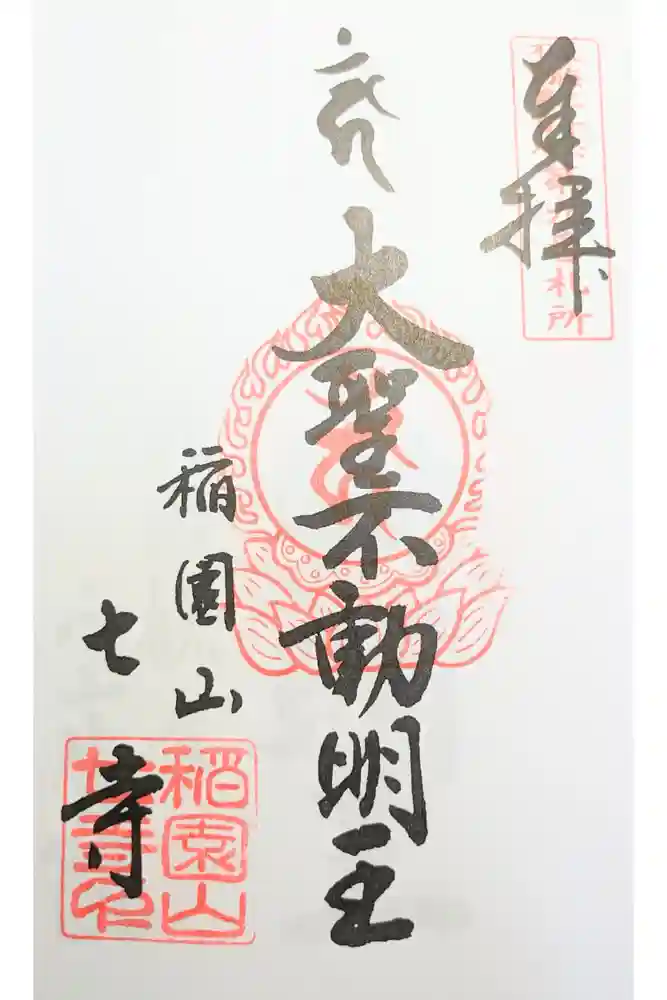 奉拝
札所
大聖不動明王
稲園山
七寺
稲園山
七寺印